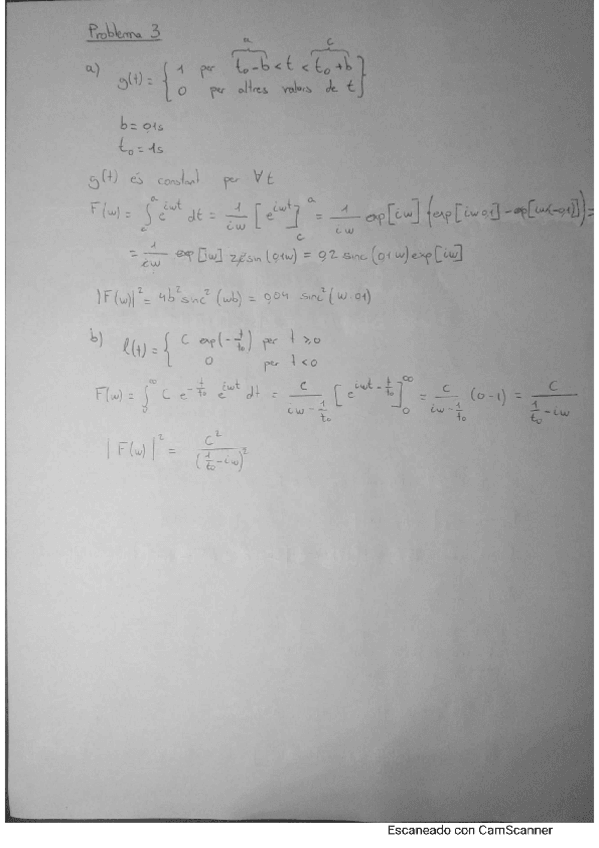 Problema 3
a c
a) g(t) = { 1 per t₀-b < t < t₀+b
0 per altres valors de t }
b = 0,1s
t₀ = 1s
g(t) és constant per ∀t
F(w) = ∫ₑᵃ e^{iwt} dt = 1/(iw) [e^{iwt}]_c^a = 1/(iw) exp[iw] {exp[iw0,1] - exp[iw(-0,1)]} =
= 1/(iw) exp[iw] 2i sin(0,1w) = 0,2 sinc(0,1w) exp[iw]
|F(w)|² = 4b² sinc²(wb) = 0,04 sinc²(w·0,1)
b) l(t) = { C exp(-t/t₀) per t ≥ 0
0 per t < 0
F(w) = ∫₀^∞ C e^{-t/t₀} e^{iwt} dt = C/(iw - 1/t₀) [e^{iwt - t/t₀}]₀^∞ = C/(iw - 1/t₀) (0-1) = C/(1/t₀ - iw)
|F(w)|² = C²/(1/t₀ - iw)²
Escaneado con CamScanner